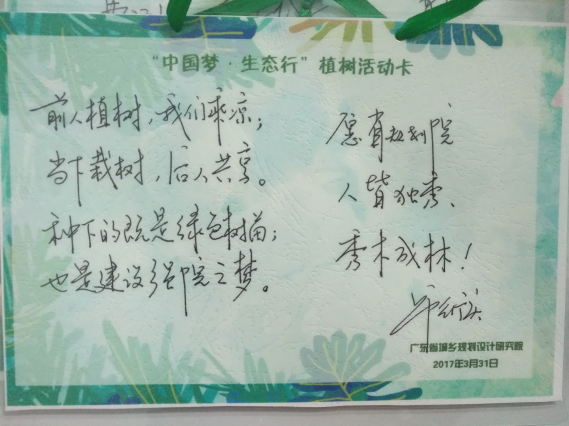 “中国梦·生态行”植树活动卡
前人植树，我们乘凉；
当下栽树，后人共享。
种下的既是绿色树苗；
也是建设强院之梦。
愿省规划院
人皆独秀、
秀木成林！
广东省城乡规划设计研究院
2017年3月31日